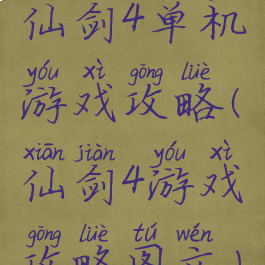 仙剑4单机
yóu xì gōng lüè
游戏攻略(
xiān jiàn yóu xì
仙剑4游戏
gōng lüè tú wén
攻略图文)